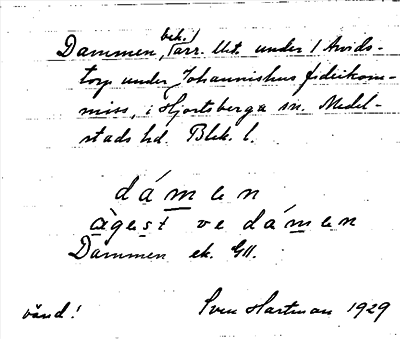 Dammen, bek. / arr. lht. under / Arids-
torp under Johannishus fideikom-
miss, i Hjortsberga sn. Medel-
stads hd. Blek. l.
dámen
àgest ve dámen
Dammen ek. Gll.
vänd! Sven Hartman 1929